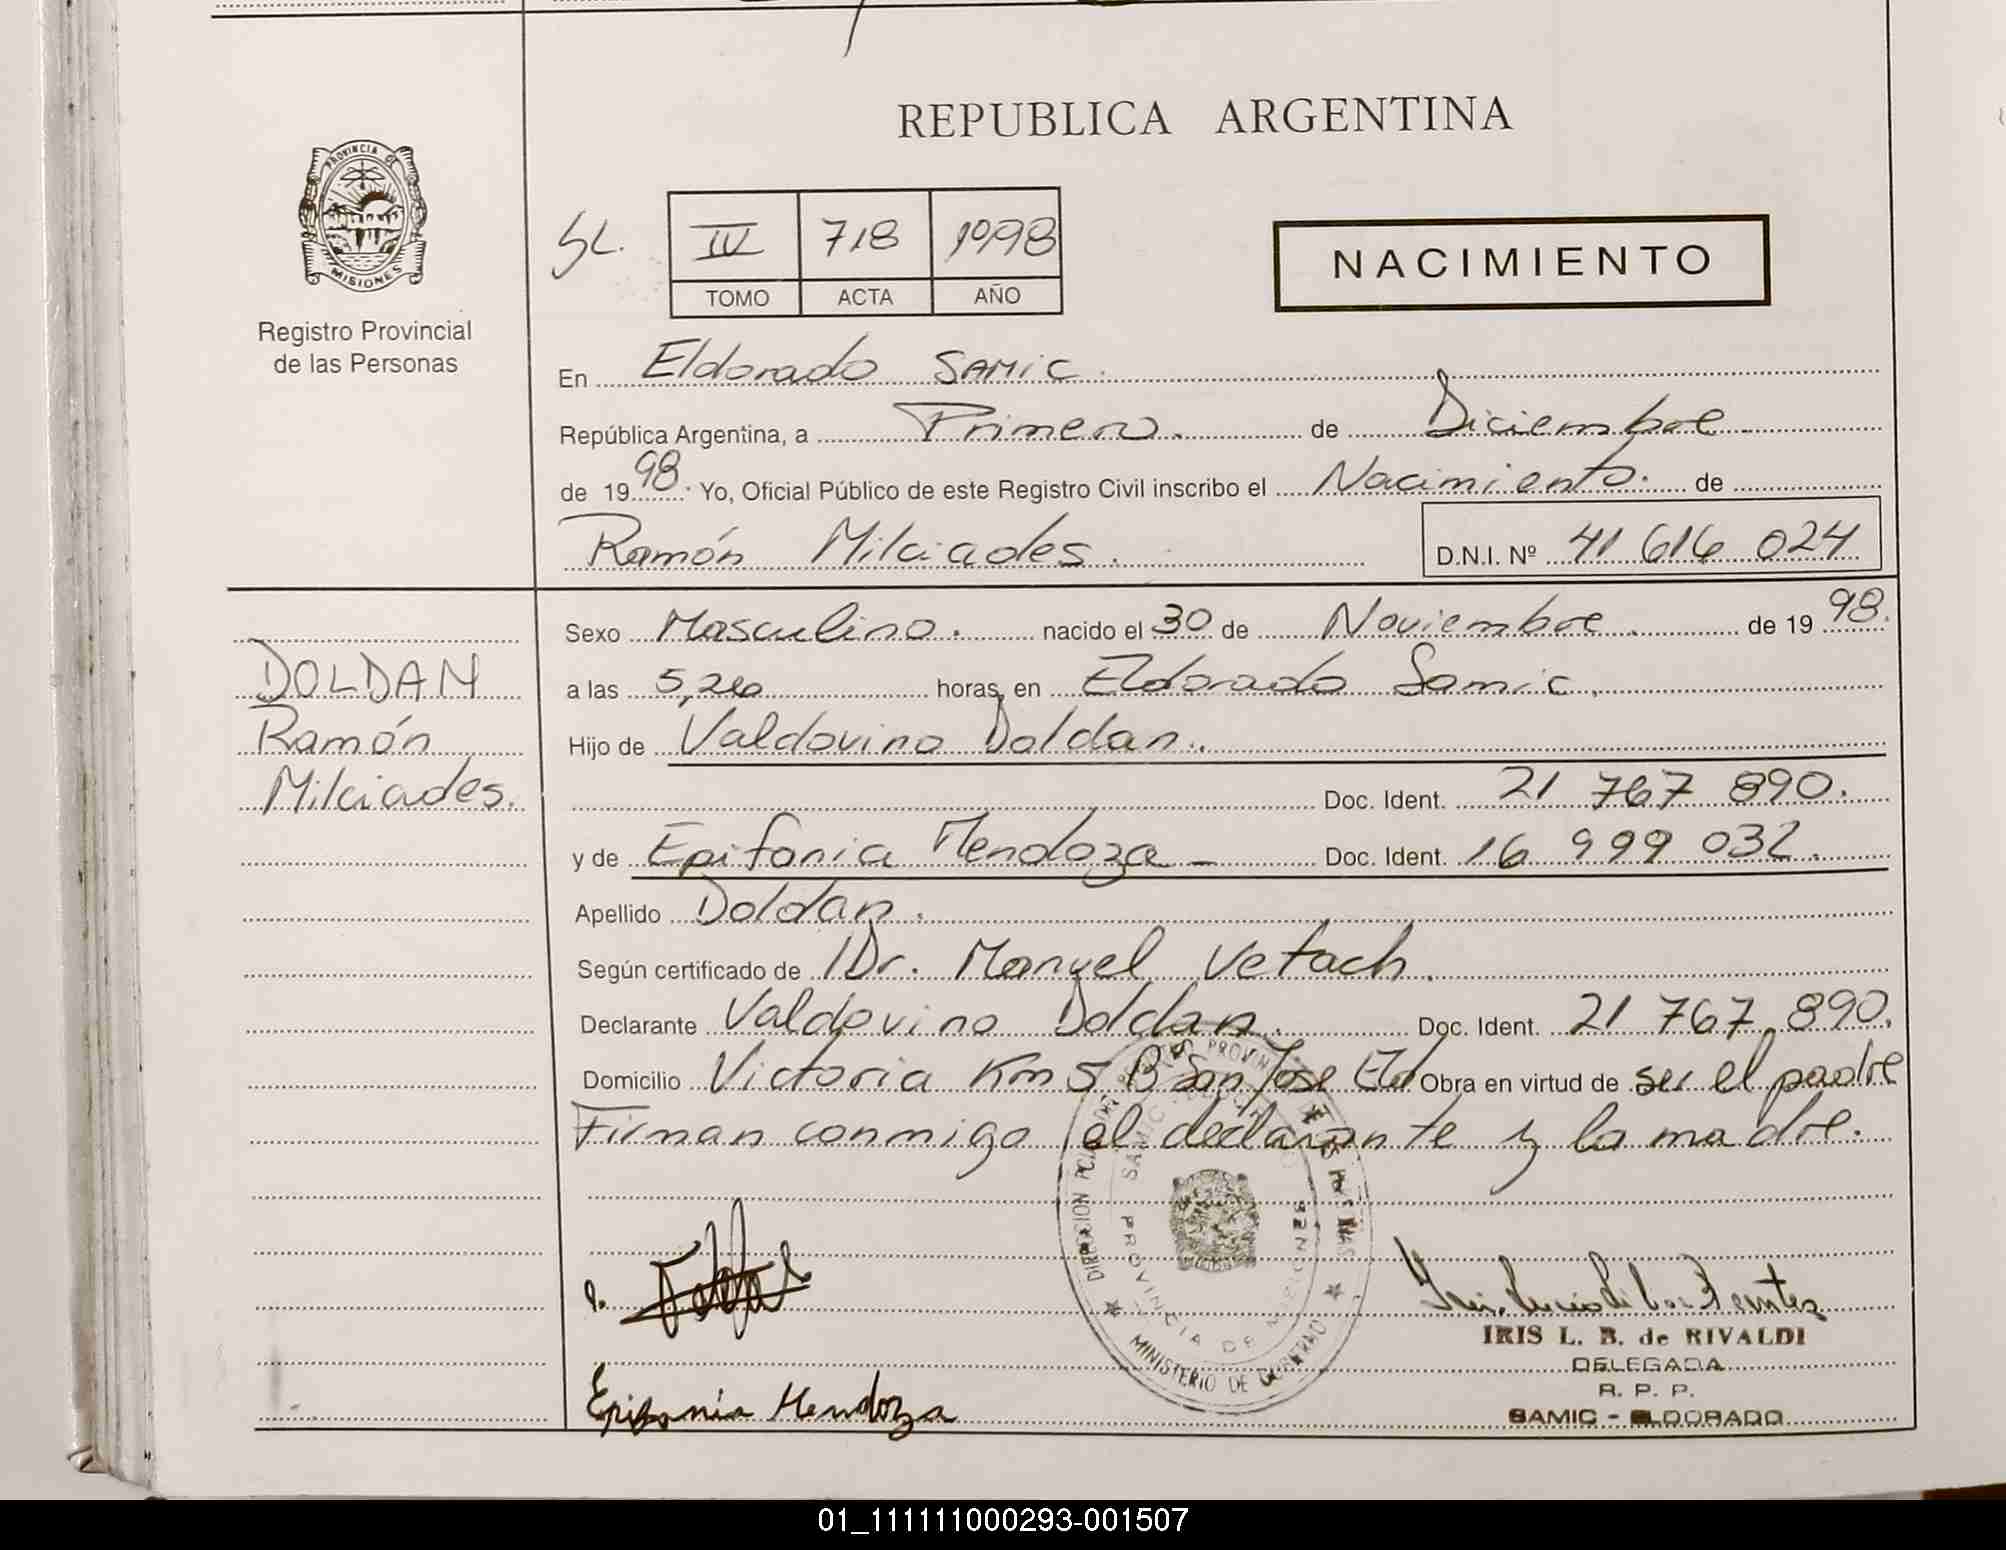 REPUBLICA ARGENTINA
PROVINCIA DE
MISIONES
Registro Provincial
de las Personas
SL.
IV 718 1998
TOMO ACTA AÑO
NACIMIENTO
En Eldorado SAMIC.
República Argentina, a Primero. de Diciembre
de 1998. Yo, Oficial Público de este Registro Civil inscribo el Nacimiento. de
Ramón Milciades. D.N.I. Nº 41 616 024
DOLDAN
Ramón
Milciades.
Sexo Masculino. nacido el 30 de Noviembre. de 1998.
a las 5,20 horas, en Eldorado Samic.
Hijo de Valdovino Doldan.
Doc. Ident. 21 767 890.
y de Epifania Mendoza - Doc. Ident. 16 999 032.
Apellido Doldan.
Según certificado de Dr. Manuel Vetach.
Declarante Valdovino Doldan. Doc. Ident. 21 767 890.
Domicilio Victoria Km 5 B San Jose Eld Obra en virtud de ser el padre
Firman conmigo el declarante y la madre.
PROVINCIA DE MISIONES
MINISTERIO DE GOBIERNO
IRIS L. B. de RIVALDI
DELEGADA
R. P. P.
SAMIC - ELDORADO
Epifania Mendoza
01_111111000293-001507